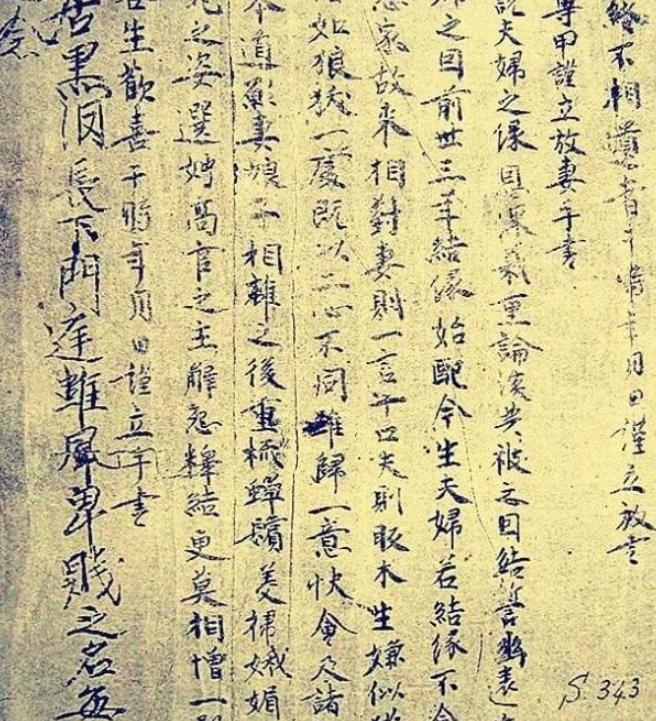 終不相遺者于時年月日謹立放書
專甲謹立放妻手書
說夫婦之緣恩深義重論談共被之因結誓幽遠
婦之因前世三年結緣始配今生夫婦若結緣不合
怨家故來相對妻則一言十口夫則販木生嫌似
如狼一處既以二心不同難歸一意快會及諸
本道願妻娘子相離之後重梳蟬鬢美掃娥媚
花之姿選娉高官之主解怨釋結更莫相憎一別
各生歡喜于時年月日謹立手書
居黑洞長下門庭雖卑賤之名每
S.343